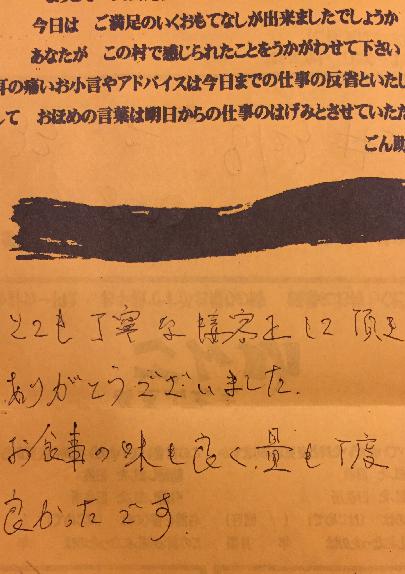 今日は ご満足のいくおもてなしが出来ましたでしょうか
あなたが この村で感じられたことをうかがわせて下さい
耳の痛いお小言やアドバイスは今日までの仕事の反省といたし
して おほめの言葉は明日からの仕事のはげみとさせていただ
ごん助
とても丁寧な接客をして頂き
ありがとうございました.
お食事の味も良く、量も丁度
良かったです.